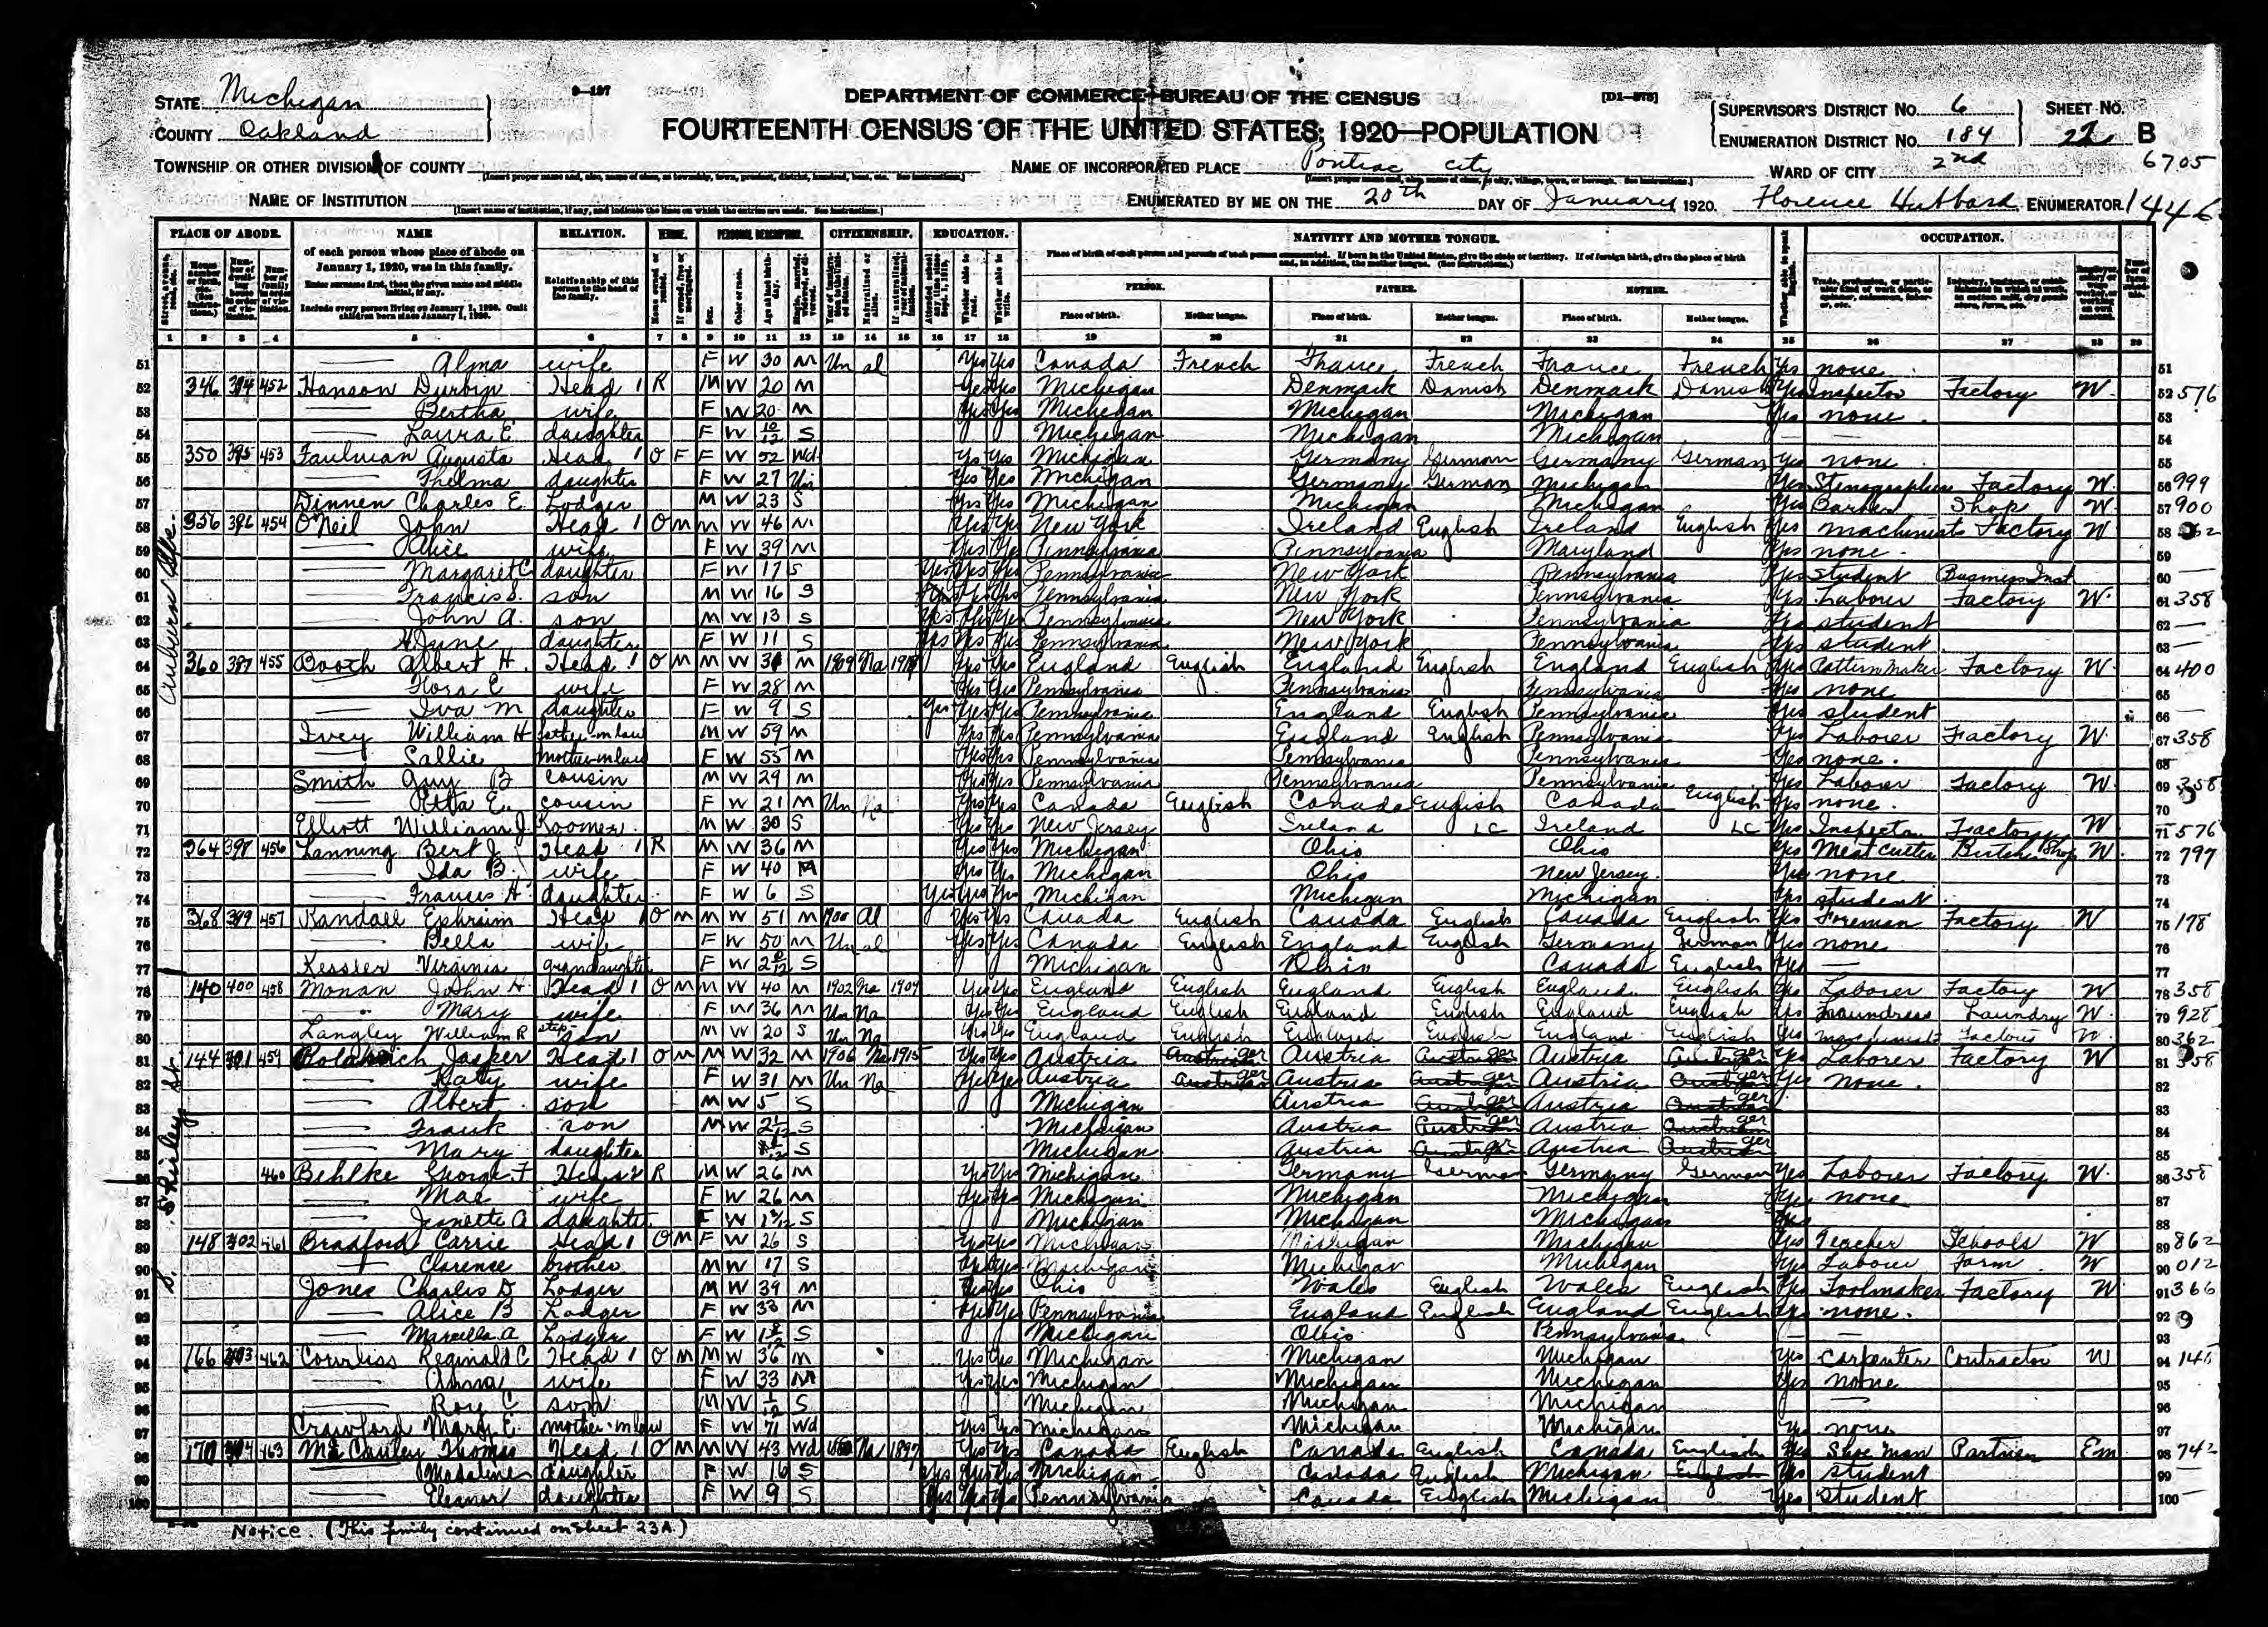 9-137
DEPARTMENT OF COMMERCE—BUREAU OF THE CENSUS
FOURTEENTH CENSUS OF THE UNITED STATES: 1920—POPULATION
STATE Michigan
COUNTY Oakland
SUPERVISOR'S DISTRICT No. 6 SHEET No.
ENUMERATION DISTRICT No. 184 22 B
TOWNSHIP OR OTHER DIVISION OF COUNTY
NAME OF INCORPORATED PLACE Pontiac city
WARD OF CITY 2nd 6705
NAME OF INSTITUTION
ENUMERATED BY ME ON THE 20th DAY OF January, 1920. Florence Hubbard ENUMERATOR 1446
PLACE OF ABODE. NAME RELATION. PERSONAL DESCRIPTION. CITIZENSHIP. EDUCATION. NATIVITY AND MOTHER TONGUE. OCCUPATION.
of each person whose place of abode on January 1, 1920, was in this family.
Enter surname first, then the given name and middle initial, if any.
Include every person living on January 1, 1920. Omit children born since January 1, 1920.
Relationship of this person to the head of the family.
PERSON. FATHER. MOTHER.
Place of birth. Mother tongue. Place of birth. Mother tongue. Place of birth. Mother tongue.
1 2 3 4 5 6 7 8 9 10 11 12 13 14 15 16 17 18 19 20 21 22 23 24 25 26 27 28 29
Auburn Ave.
51 Alma wife F W 30 M Un al Yes Yes Canada French France French France French Yes none 51
52 346 394 452 Hanson Durbin Head 1 R M W 20 M Yes Yes Michigan Denmark Danish Denmark Danish Yes Inspector Factory W 52 576
53 Bertha wife F W 20 M Yes Yes Michigan Michigan Michigan Yes none 53
54 Laura E daughter F W 10/12 S Michigan Michigan Michigan 54
55 350 395 453 Faulman Augusta Head 1 O F F W 52 Wd Yes Yes Michigan Germany German Germany German Yes none 55
56 Thelma daughter F W 27 Yes Yes Michigan Germany German Michigan Yes Stenographer Factory W 56 999
57 Dinnen Charles E. Lodger M W 23 S Yes Yes Michigan Michigan Michigan Yes Barber Shop W 57 900
58 356 396 454 O'Neil John Head 1 O M M W 46 M Yes Yes New York Ireland English Ireland English Yes machinist Factory W 58
59 Alice wife F W 39 M Yes Yes Pennsylvania Pennsylvania Maryland Yes none 59
60 Margaret C daughter F W 17 S Yes Yes Yes Pennsylvania New York Pennsylvania Yes Student Business Inst 60
61 Francis S. son M W 16 S Yes Yes Yes Pennsylvania New York Pennsylvania Yes Laborer Factory W 61 358
62 John A. son M W 13 S Yes Yes Yes Pennsylvania New York Pennsylvania Yes student 62
63 June daughter F W 11 S Yes Yes Yes Pennsylvania New York Pennsylvania Yes student 63
64 360 397 455 Booth Albert H. Head 1 O M M W M 1909 Na Yes Yes England English England English England English Yes Pattern Maker Factory W 64 400
65 Flora E wife F W 28 M Yes Yes Pennsylvania Pennsylvania Pennsylvania Yes none 65
66 Iva M daughter F W 9 S Yes Yes Yes Pennsylvania England English Pennsylvania Yes student 66
67 Ivey William H father-in-law M W 59 M Yes Yes Pennsylvania England English Pennsylvania Yes Laborer Factory W 67 358
68 Sallie mother-in-law F W 55 M Yes Yes Pennsylvania Pennsylvania Pennsylvania Yes none. 68
69 Smith Guy B cousin M W 29 M Yes Yes Pennsylvania Pennsylvania Pennsylvania Yes Laborer Factory W 69 358
70 Etta E. cousin F W 21 M Un Na Yes Yes Canada English Canada English Canada English Yes none. 70
71 Elliott William J. Roomer M W 30 S Yes Yes New Jersey Ireland LC Ireland LC Yes Inspector Factory W 71 576
72 364 398 456 Lanning Bert J Head 1 R M W 36 M Yes Yes Michigan Ohio Ohio Yes Meat Cutter Butcher Shop W 72 797
73 Ida B. wife F W 40 M Yes Yes Michigan Ohio New Jersey Yes none 73
74 Frances H daughter F W 6 S Yes Yes Yes Michigan Michigan Michigan Yes student 74
75 368 399 457 Randall Ephraim Head 1 O M M W 51 M 1900 Al Yes Yes Canada English Canada English Canada English Yes Foreman Factory W 75 178
76 Bella wife F W 50 M Un al Yes Yes Canada English England English Germany German Yes none 76
77 Kessler Virginia granddaughter F W S Michigan Ohio Canada English Yes 77
S. Shirley St.
78 140 400 458 Monan John H Head 1 O M M W 40 M 1902 Na 1907 Yes Yes England English England English England English Yes Laborer Factory W 78 358
79 Mary wife F W 36 M Un Na Yes Yes England English England English England English Yes Laundress Laundry W 79 928
80 Langley William R step-son M W 20 S Un Na Yes Yes England English England English England English Yes machinist Factory W 80 362
81 144 401 459 Jasper Head 1 O M M W 32 M 1906 Na 1915 Yes Yes Austria ger Austria ger Austria ger Yes Laborer Factory W 81 358
82 Katy wife F W 31 M Un Na Yes Yes Austria ger Austria ger Austria ger Yes none. 82
83 Albert son M W 5 S Michigan Austria ger Austria ger 83
84 Frank son M W 2 1/12 S Michigan Austria ger Austria ger 84
85 Mary daughter S Michigan Austria ger Austria ger 85
86 460 Behlke George F Head 2 R M W 26 M Yes Yes Michigan Germany German Germany German Yes Laborer Factory W 86 358
87 Mae wife F W 26 M Yes Yes Michigan Michigan Michigan Yes none 87
88 Jeanette A daughter F W S Michigan Michigan Michigan 88
89 148 402 461 Bradford Carrie Head 1 O M F W 26 S Yes Yes Michigan Michigan Michigan Yes Teacher Schools W 89 862
90 Clarence brother M W 17 S Yes Yes Michigan Michigan Michigan Yes Laborer Farm W 90 012
91 Jones Charles D Lodger M W 39 M Yes Yes Ohio Wales English Wales English Yes Toolmaker Factory W 91 366
92 Alice B Lodger F W 33 M Yes Yes Pennsylvania England English England English Yes none. 92
93 Marcella A Lodger F W S Michigan Ohio Pennsylvania 93
94 166 403 462 Courliss Reginald C Head 1 O M M W 36 M Yes Yes Michigan Michigan Michigan Yes Carpenter Contractor W 94
95 Anna wife F W 33 M Yes Yes Michigan Michigan Michigan Yes none 95
96 Roy C son M W 1/12 S Michigan Michigan Michigan 96
97 Crawford Mary E. mother-in-law F W 71 Wd Yes Yes Michigan Michigan Michigan Yes none 97
98 170 404 463 McCauley Thomas Head 1 O M M W 43 Wd Na 1897 Yes Yes Canada English Canada English Canada English Yes Shoe Man Partner Em 98 742
99 Madaline daughter F W 16 S Yes Yes Yes Michigan Canada English Michigan English Yes student 99
100 Eleanor daughter F W 9 S Yes Yes Yes Pennsylvania Canada English Michigan Yes student 100
Notice. (This family continued on Sheet 23A.)